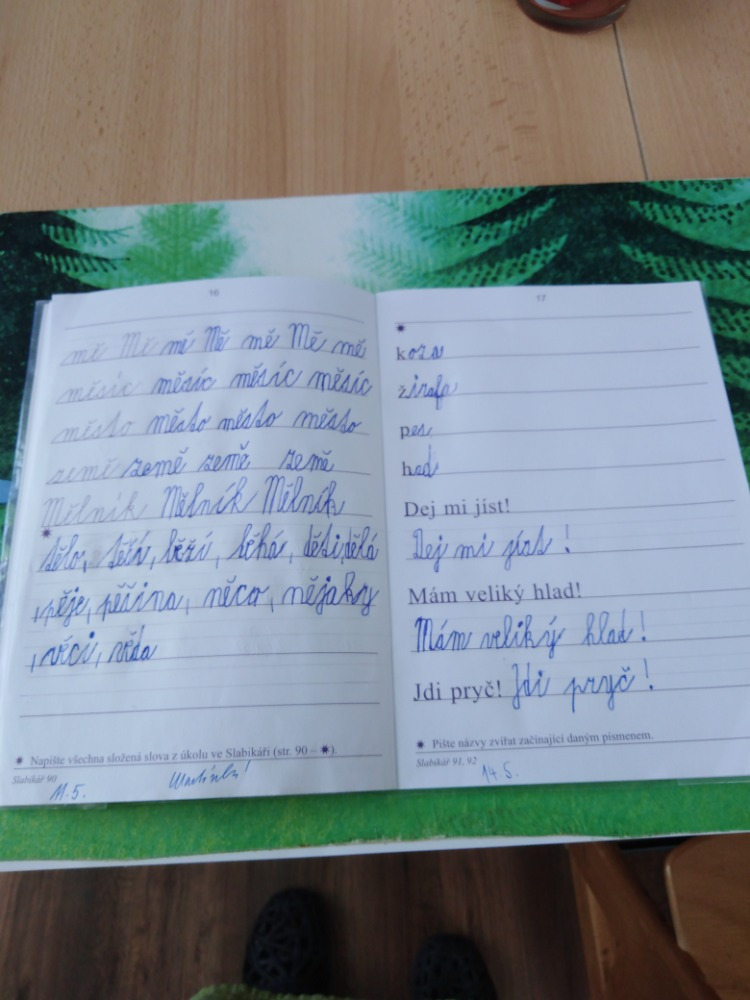 16
mě Mě mě Mě mě Mě mě
měsíc měsíc měsíc měsíc
město město město město
země země země země
Mělník Mělník Mělník
*
tělo, těší, běží, běhá, děti, dělá
, pěje, pěšina, něco, nějaký
, věci, věda
* Napište všechna složená slova z úkolu ve Slabikáři (str. 90 – *).
Slabikář 90
11.5.
17
*
koza
žirafa
pes
had
Dej mi jíst!
Dej mi jíst!
Mám veliký hlad!
Mám veliký hlad!
Jdi pryč! Jdi pryč!
* Pište názvy zvířat začínající daným písmenem.
Slabikář 91, 92
14.5.